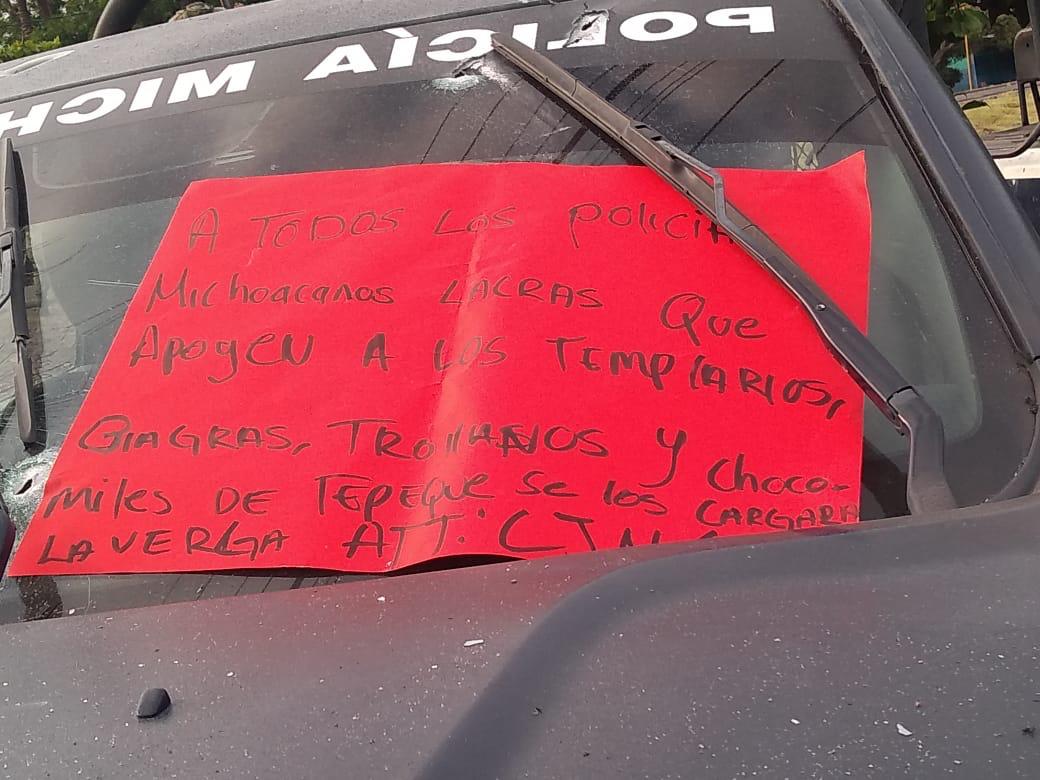 POLICÍA MICH
A TODOS LOS POliCIA
MichoacaNos LACRAS Que
ApoyeN A LOS TEMPlARIOS,
BIAGRAS, TROllANOS Y Choco-
Miles DE TEPEQUE se los CARGARA
LA VERGA ATT: CJNG